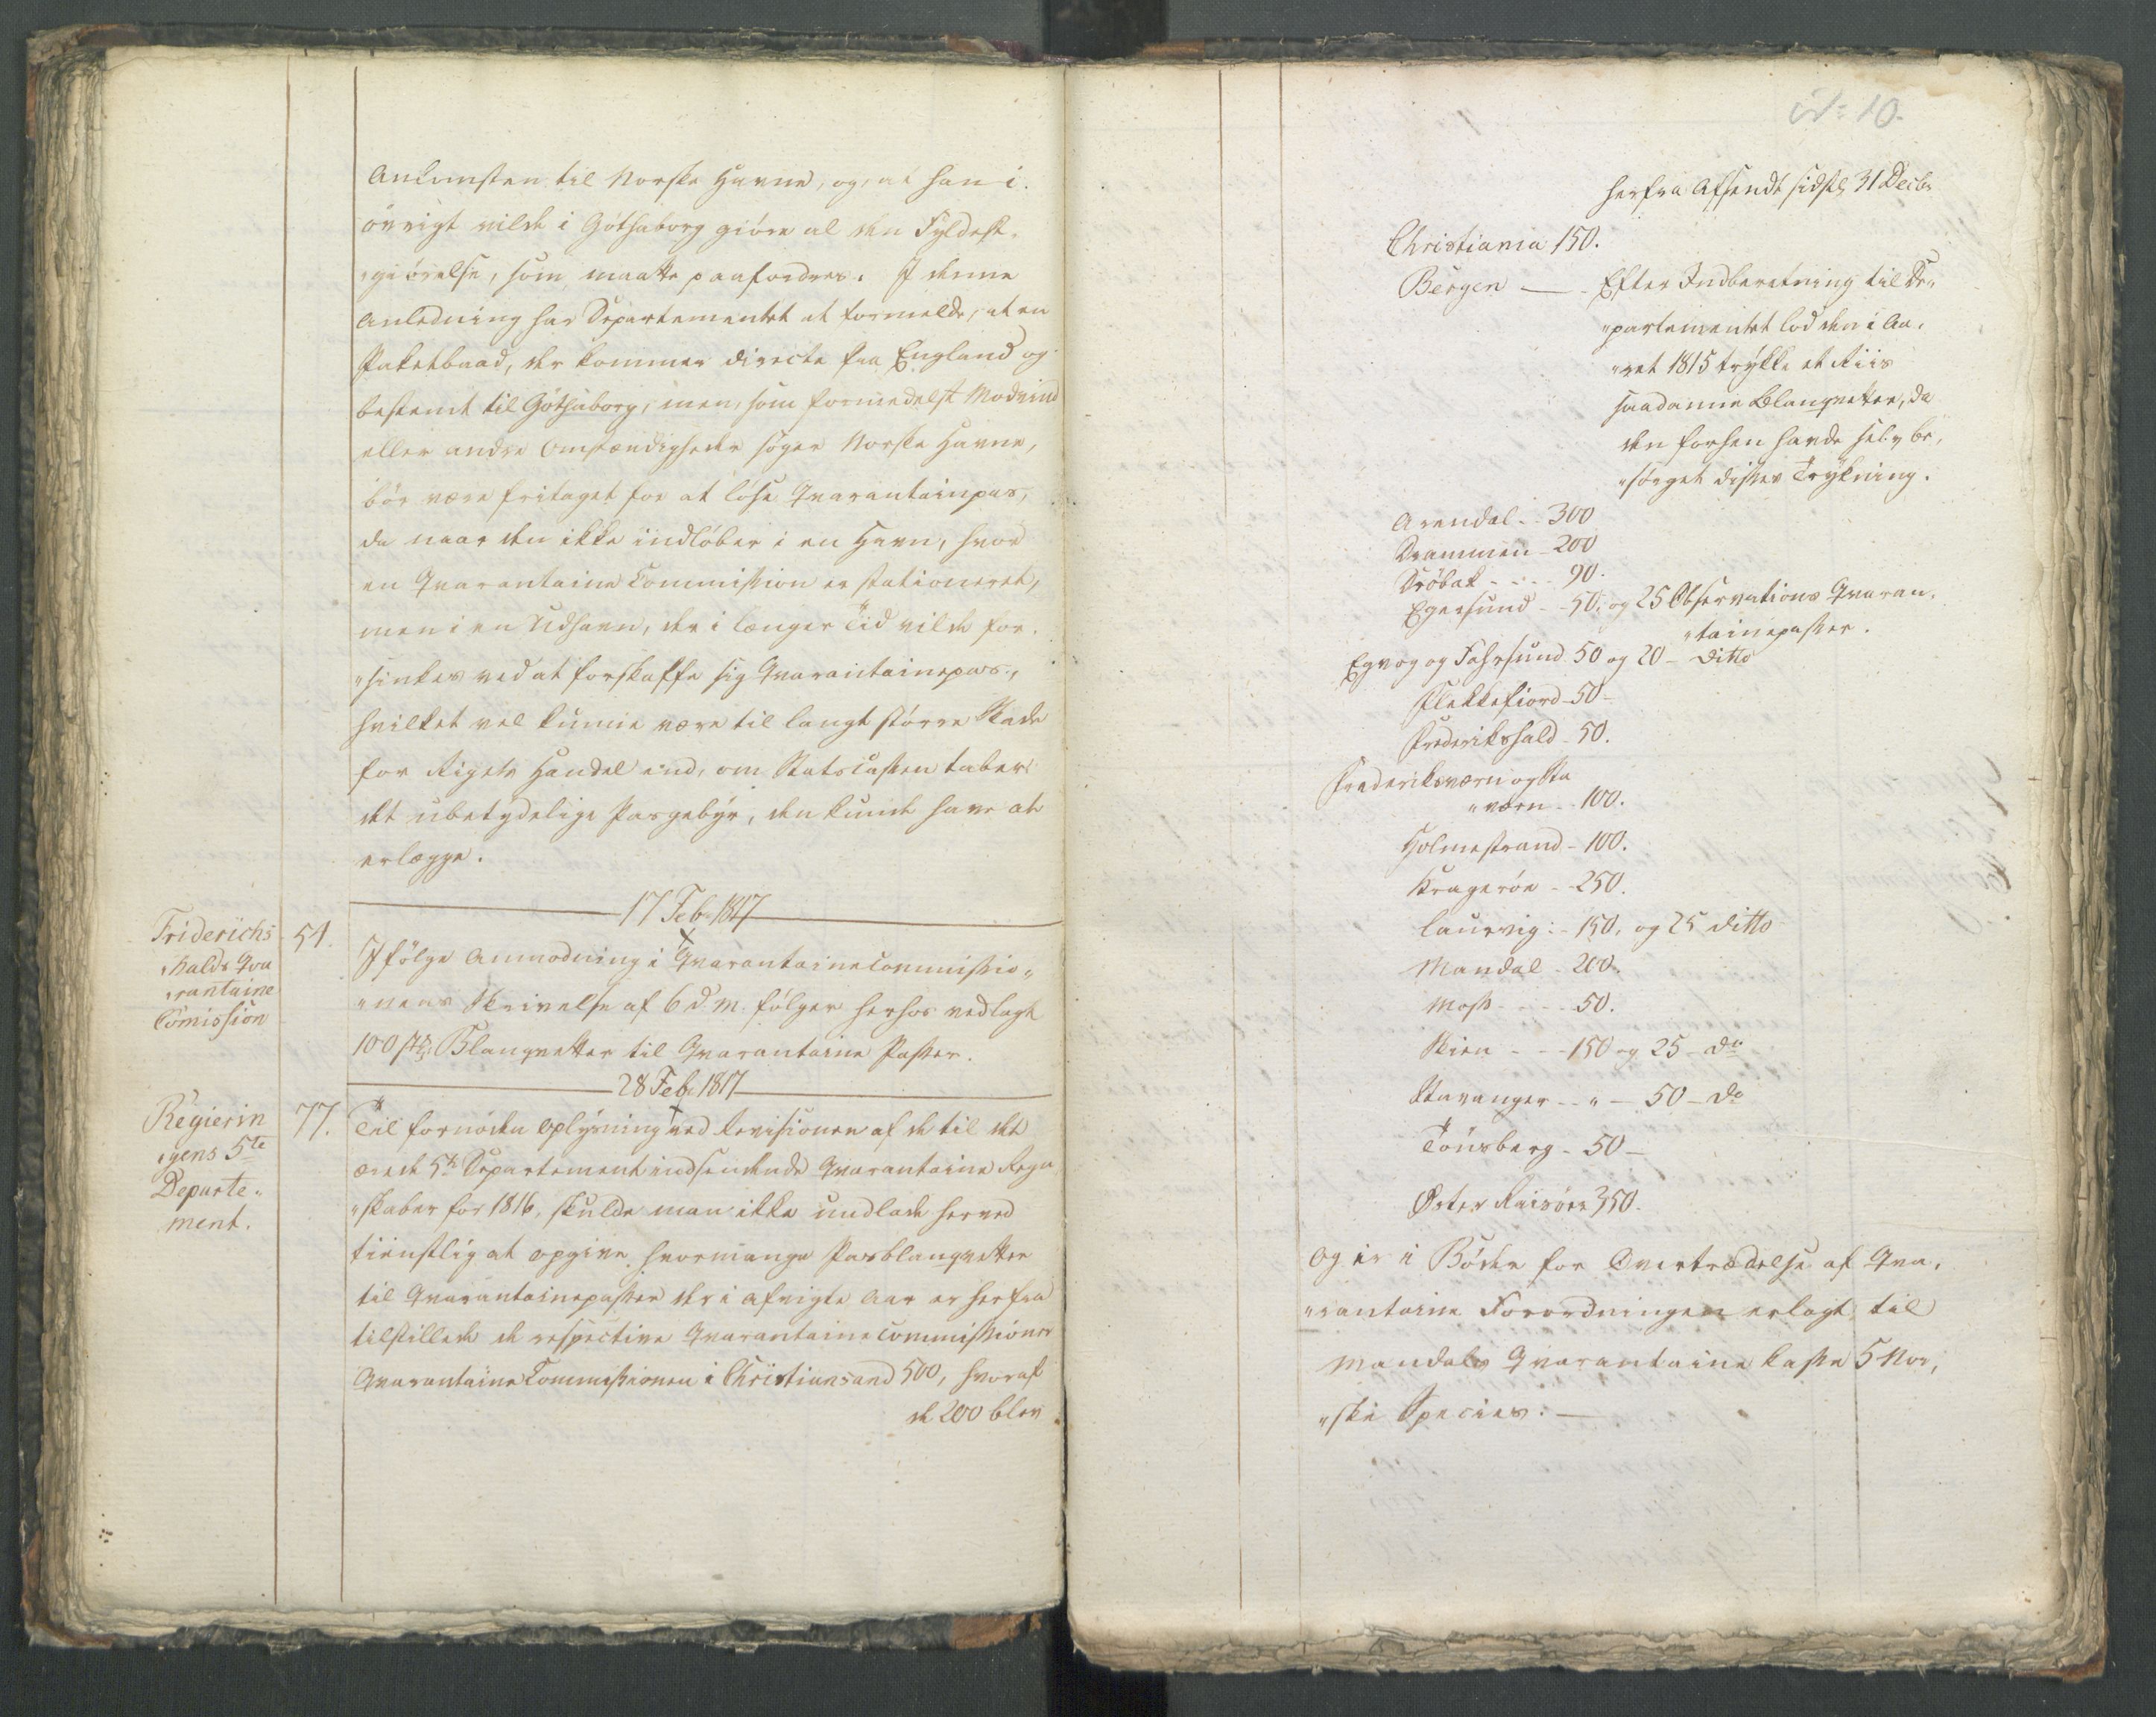 Ankomsten til Norske Havne, og, at han i
øvrigt vilde i Gøthaborg giøre al den Fyldest„
„giørelse, som maatte paafordres. I denne
Anledning har Departementet at formelde, at en
Paketbaad, der kommer directe fra England og
bestemt til Gøthaborg, men, som formedelst Modvind
eller andre Omstændigheder søger Norske Havne,
bør være fritaget for at løse Qvarantainpas,
da naar den ikke indløber i en Havn, hvor
en Qvarantaine Commission er stationeret,
men i en Udhavn, der i længer Tid vilde for„
„sinkes ved at forskaffe sig Qvarantainepas,
hvilket vel kunne være til langt større Skade
for Rigets Handel end, om Statscassen taber
det ubetydelige Pasgebyr, den kunde have at
erlægge.
17 Feb. 1817
Friderichs
„halds Qva
„rantaine
Comission
51.
Ifølge Anmodning i Qvarantainecommissio„
„nens Skrivelse af 6 d. M. følger herhos vedlagt
100 stk: Blanqvetter til Qvarantaine Passer.
28 Feb. 1817
Regierin
„gens 5te
Departe„
ment.
77.
Til fornøden Oplysning ved Revisionen af de til det
ærede 5te Departement indsendende Qvarantaine Regn
„skaber for 1816, skulde man ikke undlade herved
tienstlig at opgive hvormange Pasblanqvetter
til Qvarantainepasser der i afvigte Aar er herfra
tilstillede de respective Qvarantainecommissioner
Qvarantaine Commissionen i Christiansand 500, hvoraf
de 200 blev
10.
herfra Afsendt sidstl. 31 Decbr
Christiania 150.
Bergen — Efter Indberetning til De„
„partementet lod den i Aa„
„ret 1815 trykke et Riis
saadanne Blanqvetter, da
den forhen havde selv be„
„sørget disses Trykning.
Arendal - - 300
Drammen - 200
Drøbak - - - - 90.
Egersund - - 50, og 25 Observations Qvaran„
„tainepasser.
Egvog og Fahrsund 50 og 20 - Ditto
Flekkefiord - 50 -
Frederikshald - 50.
Frederiksværn og Sta
„værn - - 100.
Holmestrand - 100.
Kragerøe - - 250.
Laurvig: - 150, og 25 ditto
Mandal - 200.
Moss - - - - 50.
Skien - - - 150 og 25 - do
Stavanger - - „ - 50 - do
Tønsberg - 50 -
Øster Riisøer 350.
Og er i Bøder for Overtrædelse af Qva„
„rantaine Forordningen erlagt til
Mandals Qvarantaine Kasse 5 Nor„
„ske Species. —